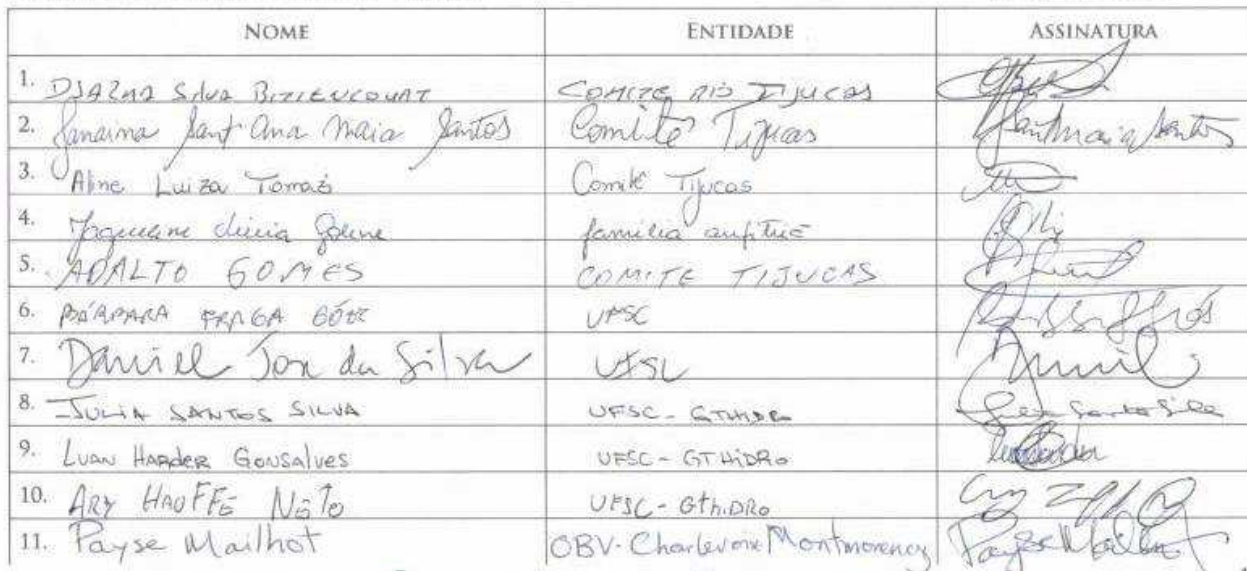 NOME ENTIDADE ASSINATURA
1. DJALMA Silva BITTENCOURT COMITE RIO TIJUCAS
2. Janaina Sant'Ana Maia Santos Comitê Tijucas SantMaia Santos
3. Aline Luiza Tomazi Comitê Tijucas
4. família anfitriã
5. ADALTO GOMES COMITE TIJUCAS
6. BÁRBARA FRAGA GÓES UFSC
7. Daniel José da Silva UFSC Daniel
8. JULIA SANTOS SILVA UFSC - GTHIDRO Julia Santos Silva
9. LUAN HARDER GONSALVES UFSC - GTHIDRO
10. ARY HAUFFE NETO UFSC - GTHIDRO
11. Payse Mailhot OBV - Charlevoix Montmorency Payse Mailhot